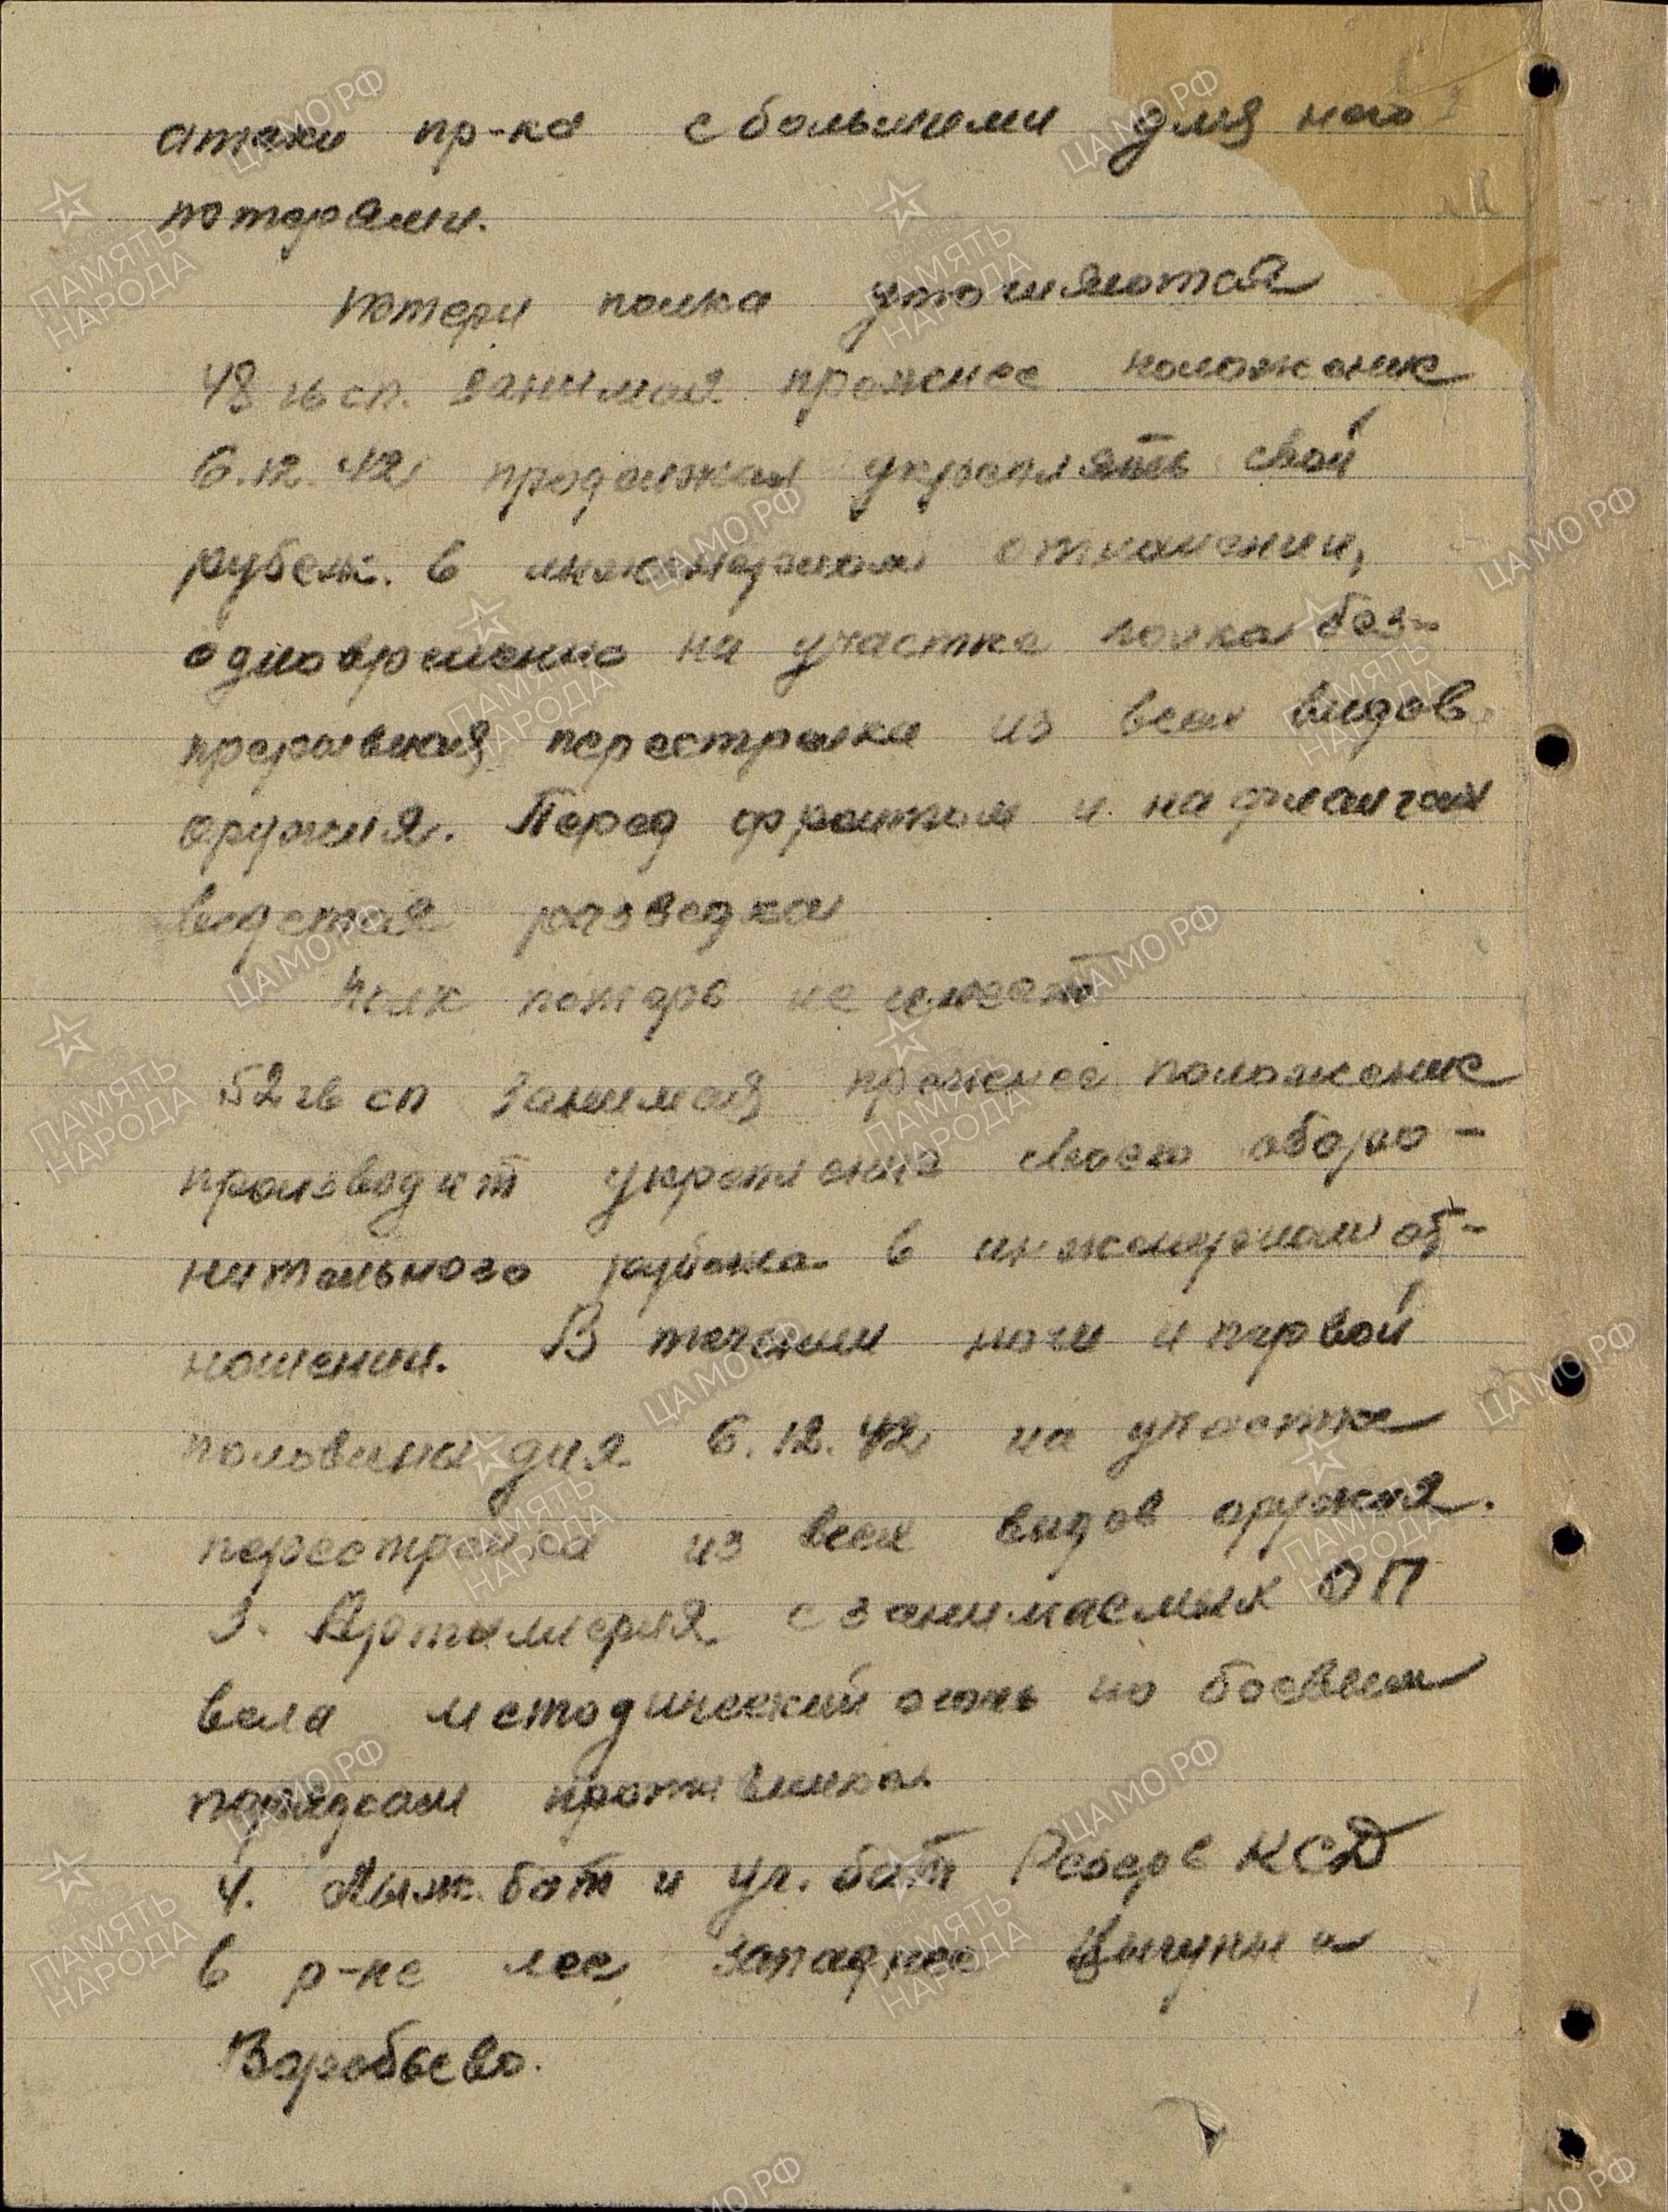 атаки пр-ка с большими для него
потерями.
Потери полка уточняются
48 гв сп. занимая прежнее положение
6.12.42 продолжал укреплять свой
рубеж. в инженерном отношении,
одновременно на участке полка без-
прерывная перестрелка из всех видов
оружия. Перед фронтом и на флангах
ведется разведка
Полк потерь не имеет
52 гв сп занимая прежнее положение
производит укрепление своего оборо-
нительного рубежа в инженерном от-
ношении. В течении ночи и первой
половины дня 6.12.42 на участке
перестрелка из всех видов оружия.
3. Артиллерия с занимаемых ОП
вела методический огонь по боевым
порядкам противника
4. Лыж. бат и уч. бат Резерв КСД
в р-не лес западнее Цыгуны и
Воробьево.